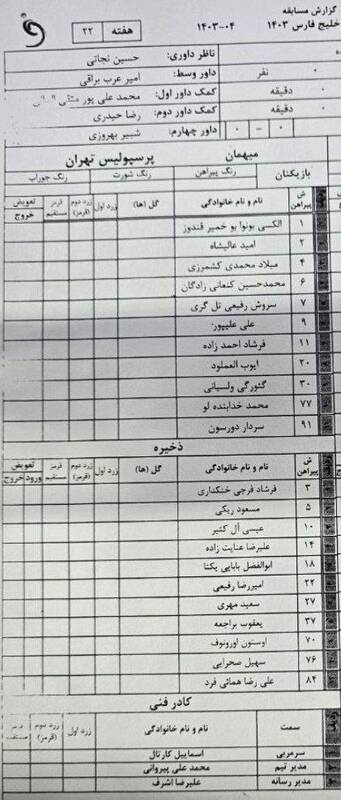 گزارش مسابقه
خلیج فارس ۱۴۰۳ ۱۴۰۳-۰۴ هفته ۲۲
ناظر داوری: حسین نجاتی
۰ نفر داور وسط: امیر عرب براقی
۰ دقیقه کمک داور اول: محمد علی پور
۰ دقیقه کمک داور دوم: رضا حیدری
۰ - ۰ داور چهارم: شبیر بهروزی
میهمان پرسپولیس تهران
بازیکنان رنگ پیراهن رنگ شورت رنگ جوراب
ش پیراهن نام و نام خانوادگی گل (ها) زرد اول زرد دوم (قرمز) قرمز مستقیم تعویض خروج
۱ الکسی بونوا یو خمیر قندوز
۲ امید عالیشاه
۴ میلاد محمدی کشمرزی
۶ محمدحسین کنعانی زادگان
۷ سروش رفیعی تل گری
۹ علی علیپور
۱۱ فرشاد احمد زاده
۲۰ ایوب العملود
۳۰ گئورگی ولسیانی
۷۷ محمد خدابنده لو
۹۱ سردار دورسون
ذخیره
ش پیراهن نام و نام خانوادگی گل (ها) زرد اول زرد دوم (قرمز) قرمز مستقیم تعویض ورود خروج
۳ فرشاد فرجی خنکداری
۵ مسعود ریگی
۱۰ عیسی آل کثیر
۱۴ علیرضا عنایت زاده
۱۸ ابوالفضل بابایی یکتا
۲۲ امیررضا رفیعی
۲۷ سعید مهری
۳۷ یعقوب براجعه
۷۰ اوستون اورونوف
۷۶ سهیل صحرایی
۸۴ علی رضا همائی فرد
کادر فنی
سمت نام و نام خانوادگی زرد اول زرد دوم (قرمز)
سرمربی اسماییل کارتال
مدیر تیم محمد علی پیروانی
مدیر رسانه علیرضا اشرف